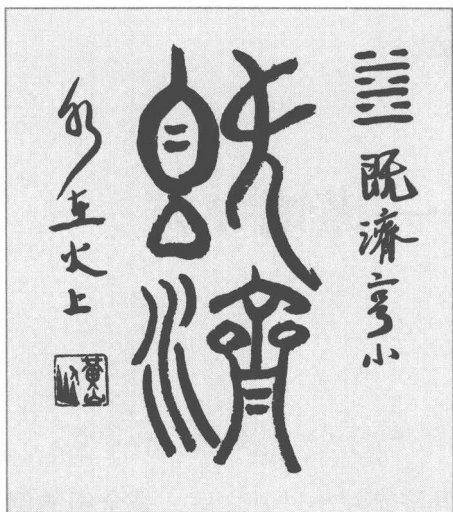 既濟亨小
既濟
水在火上